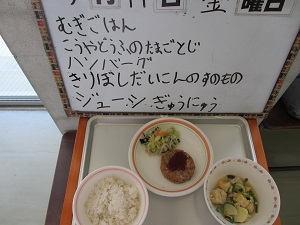 日 金 曜日
むぎごはん
こうやどうふのたまごとじ
ハンバーグ
きりぼしだいこんのすのもの
ジューシー ぎゅうにゅう